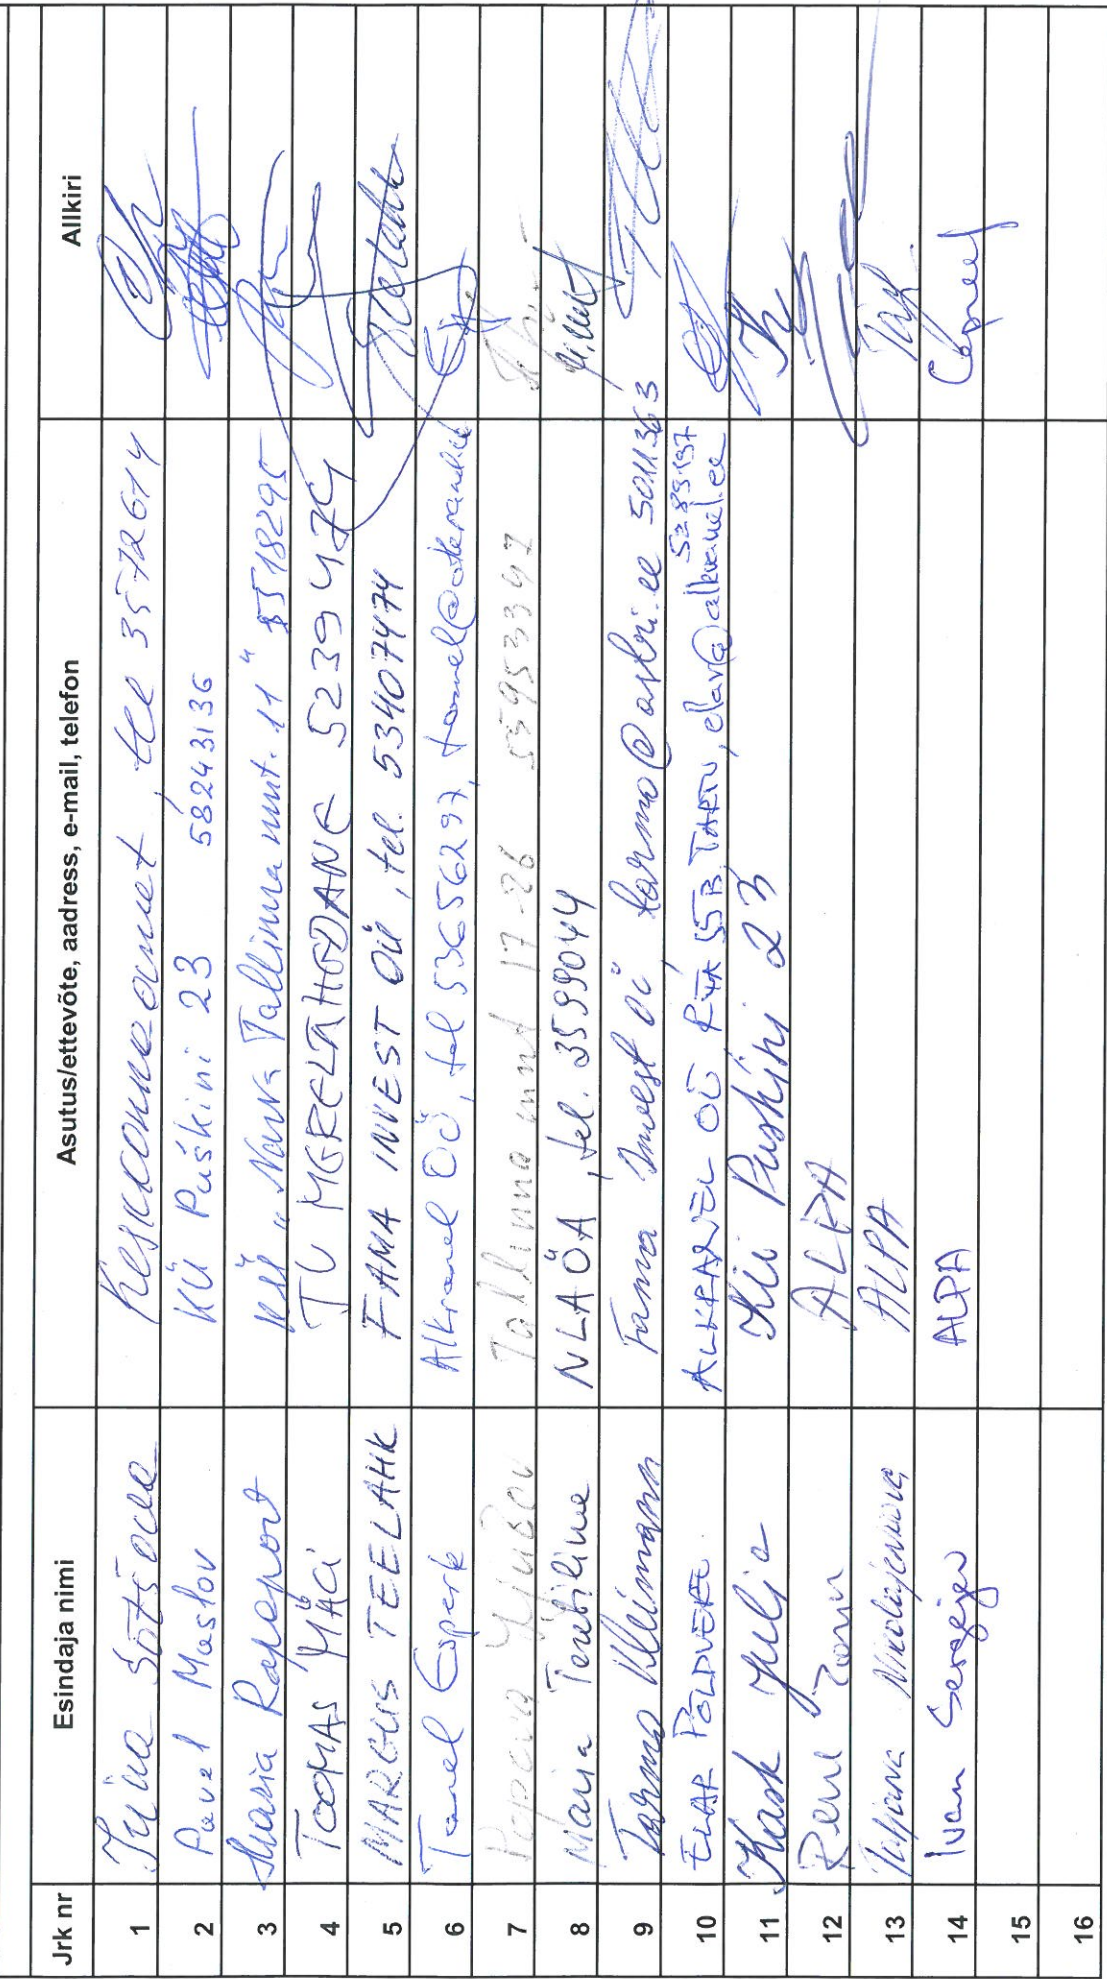 Jrk nr Esindaja nimi Asutus/ettevõte, aadress, e-mail, telefon Allkiri
1 Keskkonnaamet, tel 3572614
2 Pavel Maslov KÜ Puškini 23 58243136
3 Maria Rapoport KÜ "Narva Tallinna mnt. 11" 5518295
4 TOOMAS MÄGI 523947
5 MARGUS TEELAHK FAMA INVEST OÜ, tel. 53407474
6 Tanel Esperk Alkranel OÜ, tel 53656297, tanel@alkranel.ee
7 Popova Tallinna mnt 17-26 55953347
8 Maria Terebilina NLAÖA, tel. 3599044
9 Tarmo Kleimann Fama Invest OÜ tarmo@astri.ee 5011363
10 ELAR PÕLDVERE ALKRANEL OÜ RIIA 15B, TARTU, elar@alkranel.ee
11 Kask Julja KÜ Pushkini 23
12 Rene ALPA
13 Tatjana Nikolajenko ALPA
14 Ivan Sergejev ALPA
15
16